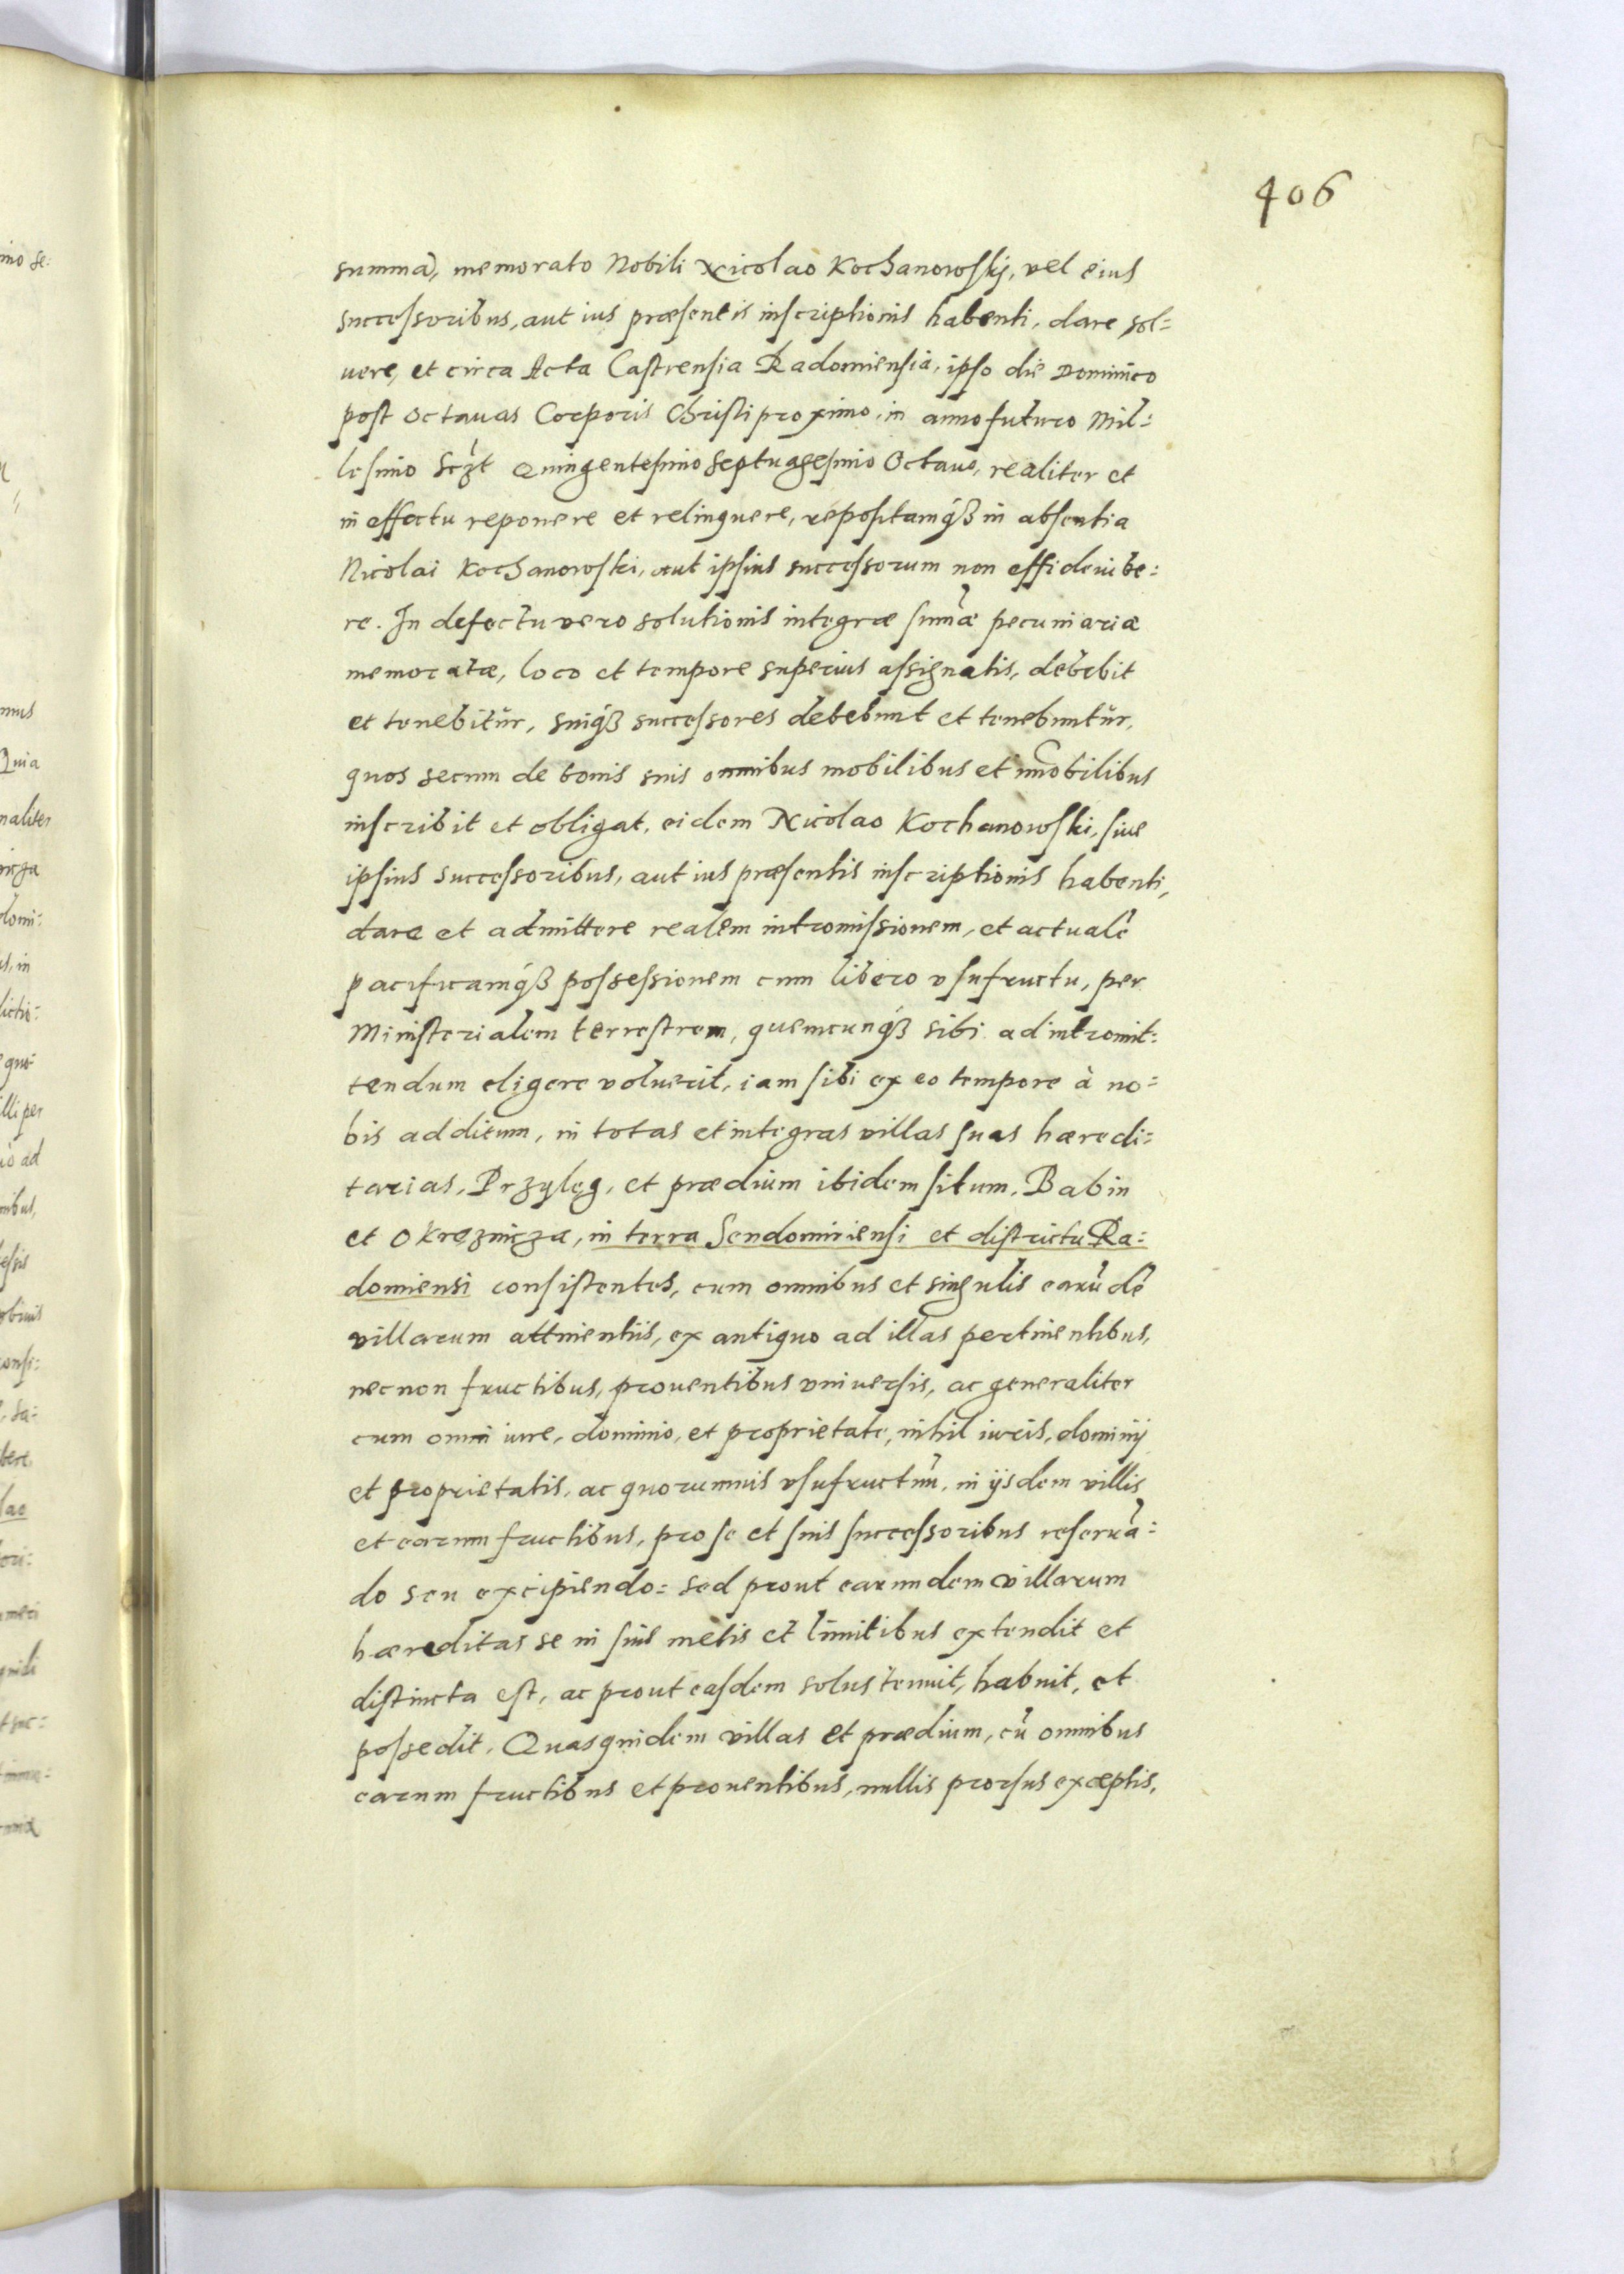 406
summā, memorato Nobili Nicolao Kochanowskj, vel eius
successoribus, aut ius præsentis inscriptionis habenti, dare sol=
uere, et circa Acta Castrensia Radomiensia, ipso die Dominico
post octauas Corporis Christi proximo, in anno futuro Mil=
lesimo Quingentesimo Septuagesimo Octauo, realiter et
in effectu reponere et relinquere, repositamq́ꝫ in absentia
Nicolai Kochanowski, aut ipsius successorum non effidemibe=
re. In defectu vero solutionis integræ sum̄æ pecuniariæ
memoratæ, loco et tempore superius assignatis, debebit
et tenebitur, suiq́ꝫ successores debebunt et tenebuntur,
quos secum de bonis suis omnibus mobilibus et im̄obilibus
inscribit et obligat, eidem Nicolao Kochanowski, siue
ipsius successoribus, aut ius præsentis inscriptionis habenti,
dare et admittere realem intromissionem, et actualē
pacificamq́ꝫ possessionem cum libero vsufructu, per
Ministerialem terrestrem, quemcunq́ꝫ sibi ad intromit=
tendum eligere voluerit, iam sibi ex eo tempore à no=
bis additum, in totas et integras villas suas hæredi=
tarias, Przylęg, et prædium ibidem situm, Babin
et Okręznicza, in terra Sendomiriensi et districtu Ra=
domiensi consistentes, cum omnibus et singulis earūdē
villarum attinentiis, ex antiquo ad illas pertinentibus,
necnon fructibus, prouentibus vniuersis, ac generaliter
cum omni iure, dominio, et proprietate, nihil iuris, dominij
et proprietatis, ac quorumuis vsufructuū, in ijsdem villis
et earum fructibus, pro se et suis successoribus reseruā=
do seu excipiendo= sed prout earundem villarum
hæreditas se in suis metis et limitibus extendit et
distincta est, ac prout easdem solus tenuit, habuit, et
possedit. Quasquidem villas et prædium, cū omnibus
earum fructibus et prouentibus, nullis prorsus exceptis,